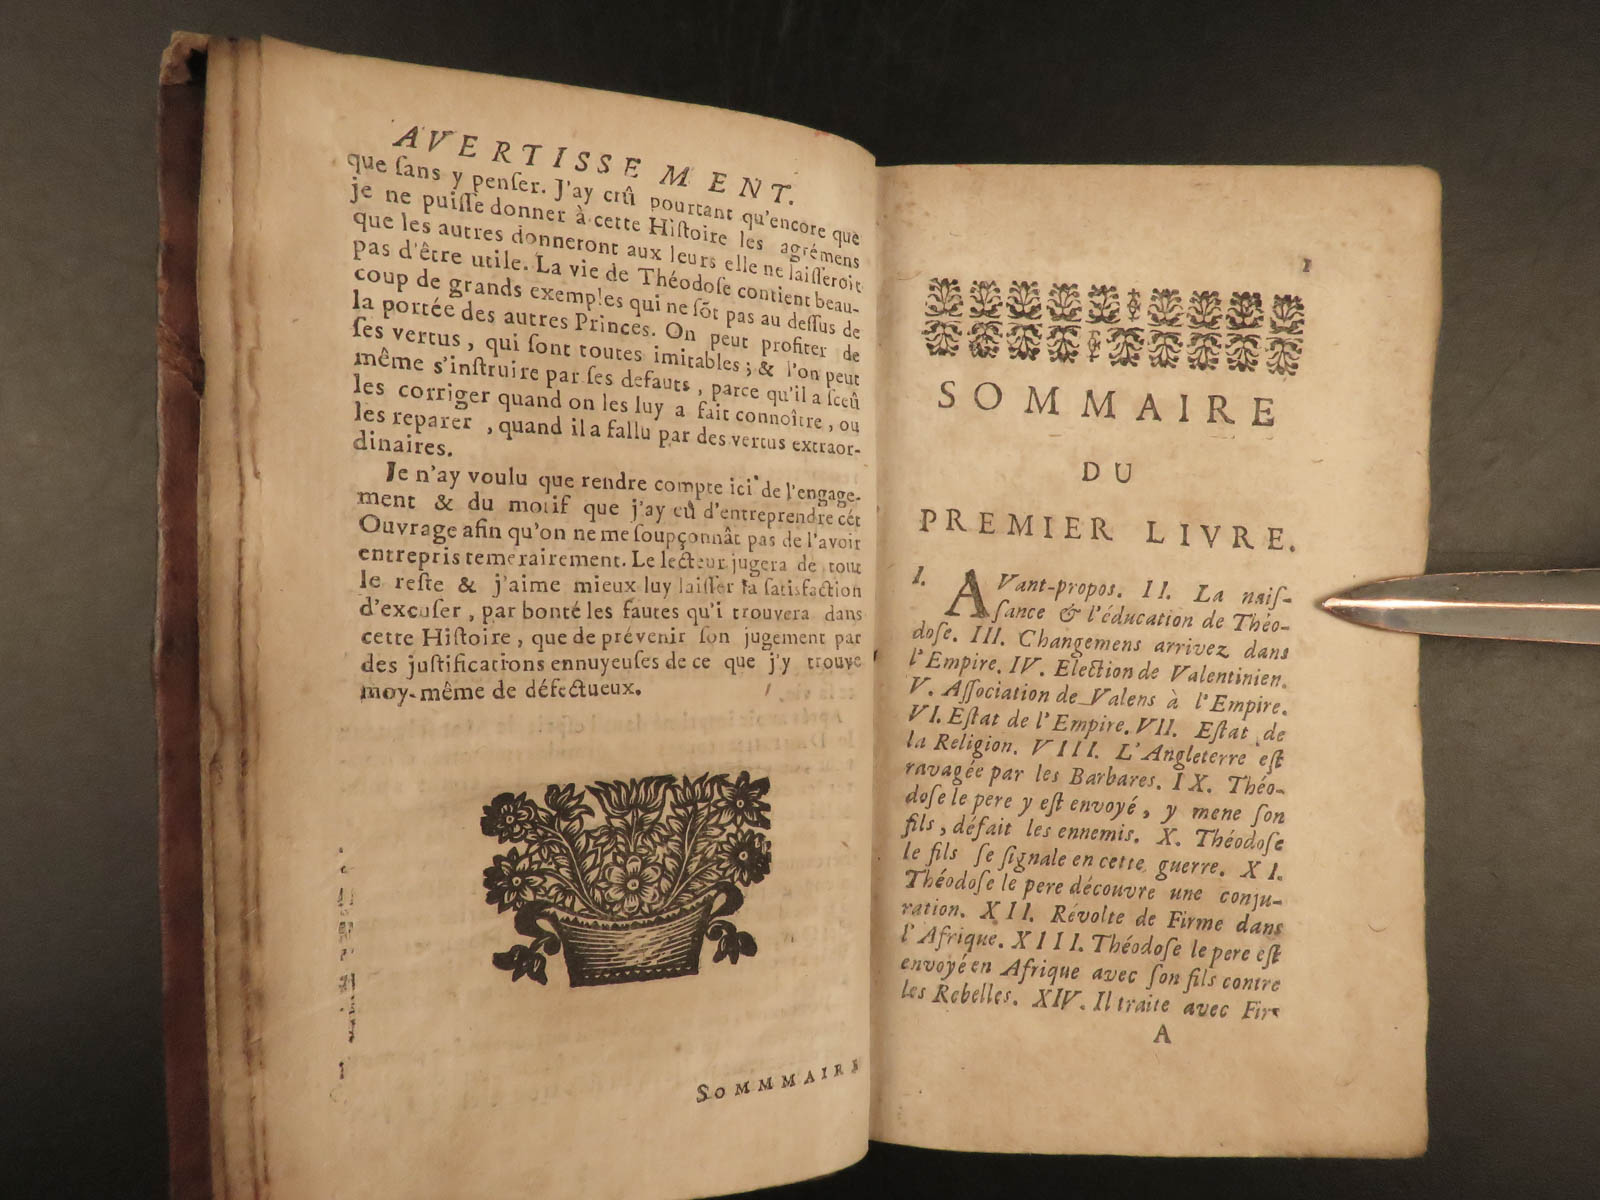 AVERTISSEMENT.
que ſans y penſer. J'ay crû pourtant qu'encore que
je ne puiſſe donner à cette Hiſtoire les agrémens
que les autres donneront aux leurs elle ne laiſſeroit
pas d'être utile. La vie de Théodoſe contient beau-
coup de grands exemples qui ne ſõt pas au deſſus de
la portée des autres Princes. On peut profiter de
ſes vertus, qui ſont toutes imitables; & l'on peut
même s'inſtruire par ſes defauts, parce qu'il a ſceû
les corriger quand on les luy a fait connoître, ou
les reparer, quand il a fallu par des vertus extraor-
dinaires.
Je n'ay voulu que rendre compte ici de l'engage-
ment & du motif que j'ay eû d'entreprendre cét
Ouvrage afin qu'on ne me ſoupçonnât pas de l'avoir
entrepris temerairement. Le lecteur jugera de tout
le reſte & j'aime mieux luy laiſſer la ſatisfaction
d'excuſer, par bonté les fautes qu'i trouvera dans
cette Hiſtoire, que de prévenir ſon jugement par
des juſtifications ennuyeuſes de ce que j'y trouve
moy-même de défectueux.
SOMMMAIRE
1
SOMMAIRE
DU
PREMIER LIVRE.
I. AVant-propos. II. La naiſ-
ſance & l'éducation de Théo-
doſe. III. Changemens arrivez dans
l'Empire. IV. Election de Valentinien.
V. Aſſociation de Valens à l'Empire.
VI. Eſtat de l'Empire. VII. Eſtat de
la Religion. VIII. L'Angleterre eſt
ravagée par les Barbares. IX. Théo-
doſe le pere y eſt envoyé, y mene ſon
fils, défait les ennemis. X. Théodoſe
le fils ſe ſignale en cette guerre. XI.
Théodoſe le pere découvre une conju-
ration. XII. Révolte de Firme dans
l'Afrique. XIII. Théodoſe le pere eſt
envoyé en Afrique avec ſon fils contre
les Rebelles. XIV. Il traite avec Fir-
A